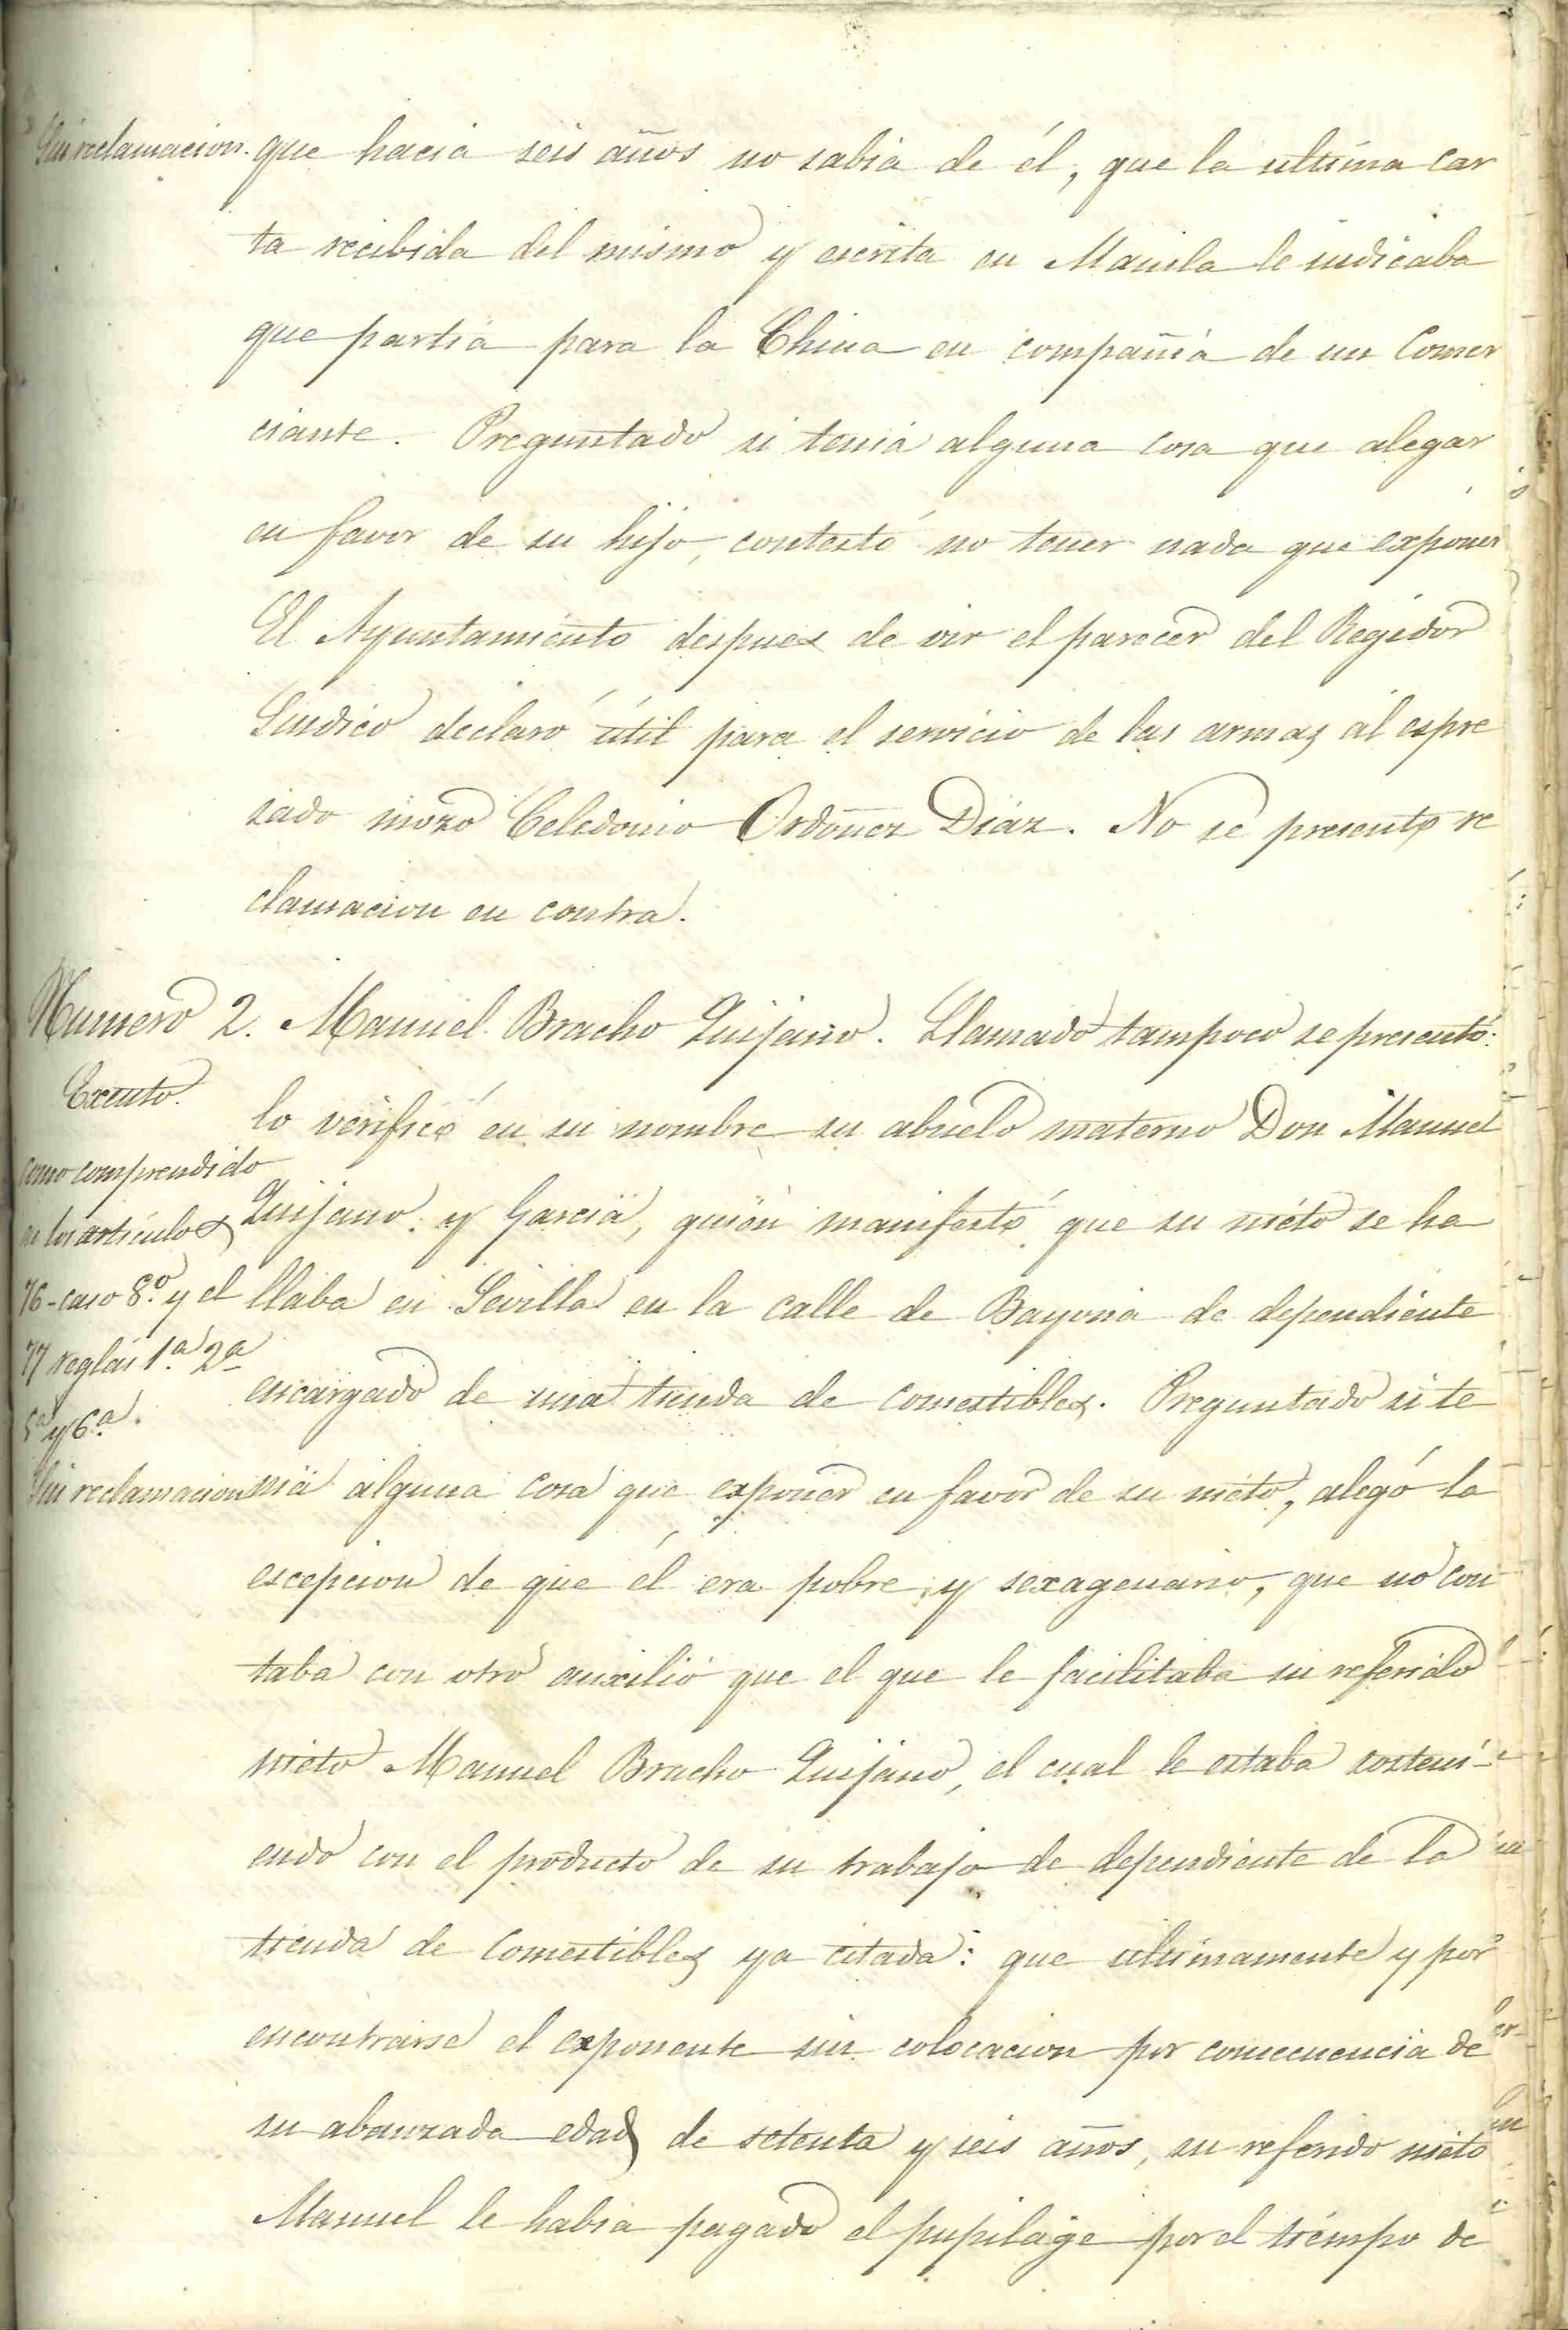 Sin reclamacion.
que hacia seis años no sabia de él, que la ultima car
ta recibida del mismo y escrita en Manila le indicaba
que partia para la China en compañia de un Comer
ciante. Preguntado si tenia alguna cosa que alegar
en favor de su hijo, contestó no tener nada que exponer
El Ayuntamiento despues de oir el parecer del Regidor
Sindico declaró útil para el servicio de las armas al espre
sado mozo Celedonio Ordoñez Diaz. No se presentó re
clamacion en contra.
Numero 2. Manuel Bracho Quijano. Llamado tampoco se presentó:
Exento.
como comprendido
en los articulos
76-caso 8.º y el
77 reglas 1.ª 2ª
5ª y 6.ª
Sin reclamacion
lo verificó en su nombre su abuelo materno Don Manuel
Quijano y Garcia, quien manifestó que su nieto se ha
llaba en Sevilla en la calle de Bayona de dependiente
encargado de una tienda de comestibles. Preguntado si te
nia alguna cosa que exponer en favor de su nieto, alegó la
escepcion de que él era pobre y sexagenario, que no con
taba con otro auxilio que el que le facilitaba su referido
nieto Manuel Bracho Quijano, el cual le estaba sosteni-
endo con el producto de su trabajo de dependiente de la
tienda de Comestibles ya citada: que ultimamente y por
encontrarse el exponente sin colocacion por consecuencia de
su abanzada edad de setenta y seis años, su referido nieto
Manuel le habia pagado el pupilage por el tiempo de